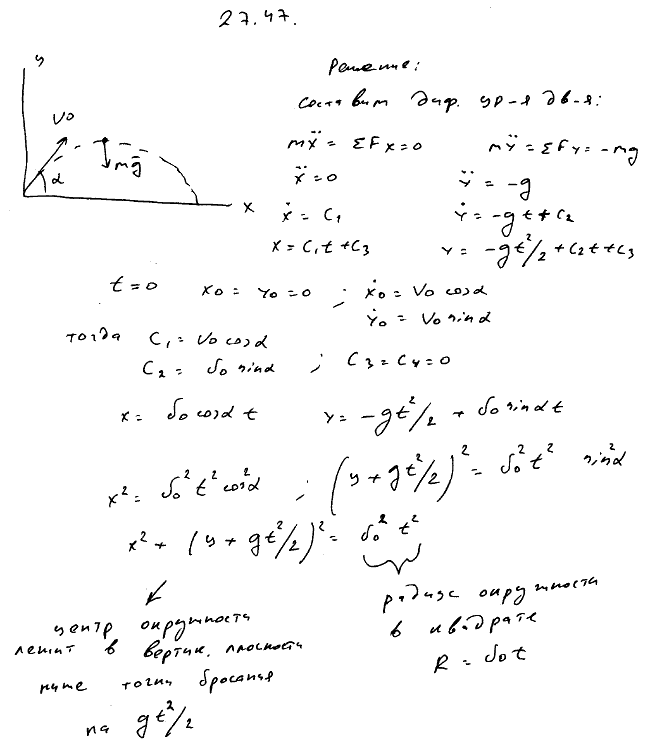 27.47.
y
Решение:
составим диф. ур-я дв-я:
v0
mẍ = ΣFx=0 mÿ = ΣFy= -mg
mg̅
α
ẍ = 0 ÿ = -g
x
ẋ = C₁ ẏ = -gt + C₂
x = C₁t + C₃ y = -gt²/2 + C₂t + C₃
t=0 x0 = y0 = 0 ; ẋ0 = v0 cosα
ẏ0 = v0 sinα
тогда C₁ = v0 cosα
C₂ = v0 sinα ; C₃ = C₄ = 0
x = v0 cosα t y = -gt²/2 + v0 sinα t
x² = v0² t² cos²α ; (y + gt²/2)² = v0² t² sin²α
x² + (y + gt²/2)² = v0² t²
центр окружности
лежит в вертик. плоскости
ниже точки бросания
на gt²/2
радиус окружности
в квадрате
R = v0t